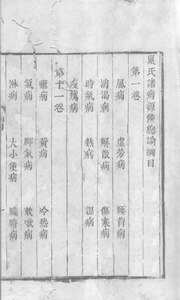 巢氏諸病源候總論綱目
第一卷
風病　虛勞病　腰背病
消渴病　解散病　傷寒病
時氣病　熱病　溫病
疫癘病
第十一卷
瘧病　黃病　冷熱病
氣病　脚氣病　欬嗽病
淋病　大小便病　臟腑病